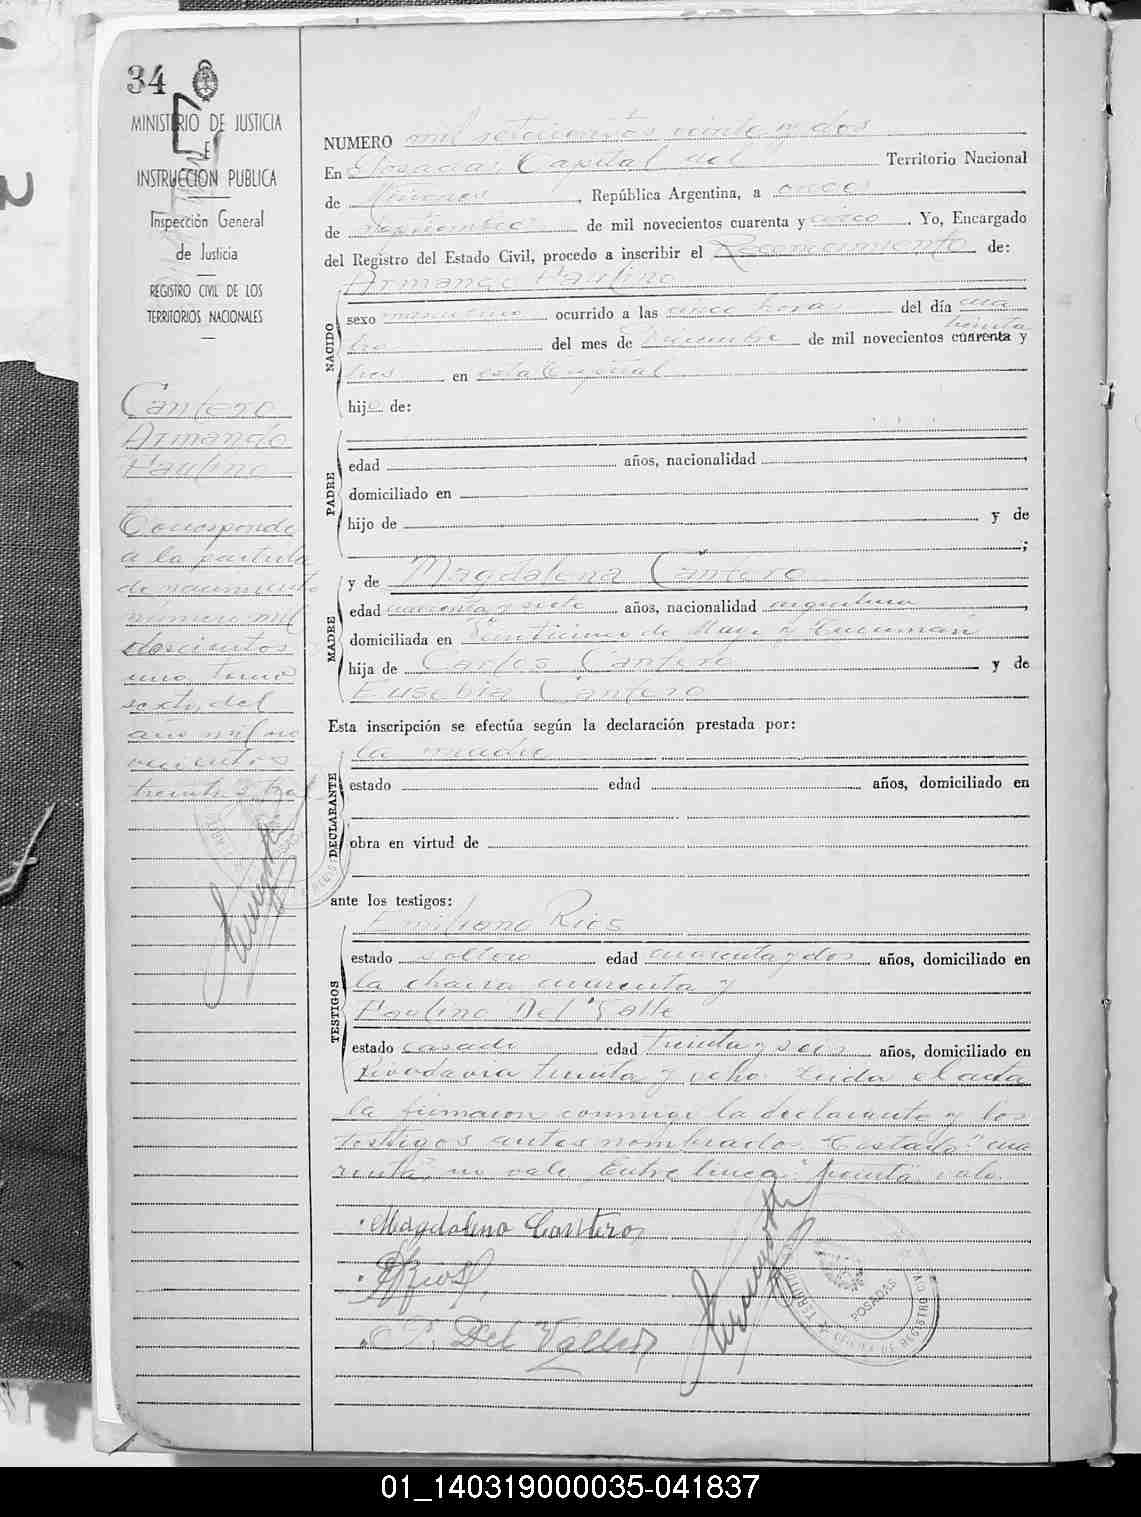 34
MINISTERIO DE JUSTICIA
E
INSTRUCCION PUBLICA
Inspección General
de Justicia
REGISTRO CIVIL DE LOS
TERRITORIOS NACIONALES
Cantero
Armando
Paulino
Corresponde
a la partida
de nacimiento
número mil
doscientos
uno tomo
sexto, del
año mil no
vecientos
treinta y tres
NUMERO mil setecientos veinte y dos
En Posadas, Capital del Territorio Nacional
de Misiones, República Argentina, a once
de septiembre de mil novecientos cuarenta y cinco. Yo, Encargado
del Registro del Estado Civil, procedo a inscribir el Reconocimiento de:
Armando Paulino
NACIDO
sexo masculino ocurrido a las cinco horas del día cua
treinta
tro del mes de Diciembre de mil novecientos cuarenta y
tres en esta Capital
hijo de:
PADRE
edad años, nacionalidad
domiciliado en
hijo de y de
;
MADRE
y de Magdalena Cantero
edad cuarenta y siete años, nacionalidad argentina,
domiciliada en Veinticinco de Mayo y Tucumán
hija de Carlos Cantero y de
Eusebia Cantero
Esta inscripción se efectúa según la declaración prestada por:
DECLARANTE
la madre
estado edad años, domiciliado en
obra en virtud de
ante los testigos:
TESTIGOS
Emiliano Rios
estado soltero edad cuarenta y dos años, domiciliado en
la chacra cuarenta y
Paulino Del Valle
estado casado edad treinta y seis años, domiciliado en
Rivadavia treinta y ocho. Leida el acta
la firmaron conmigo la declarante y los
testigos antes nombrados. Testado "cua
renta" no vale. Entre linea "treinta" vale.
Magdalena Cantero
P. Del Valle
POSADAS
01_140319000035-041837